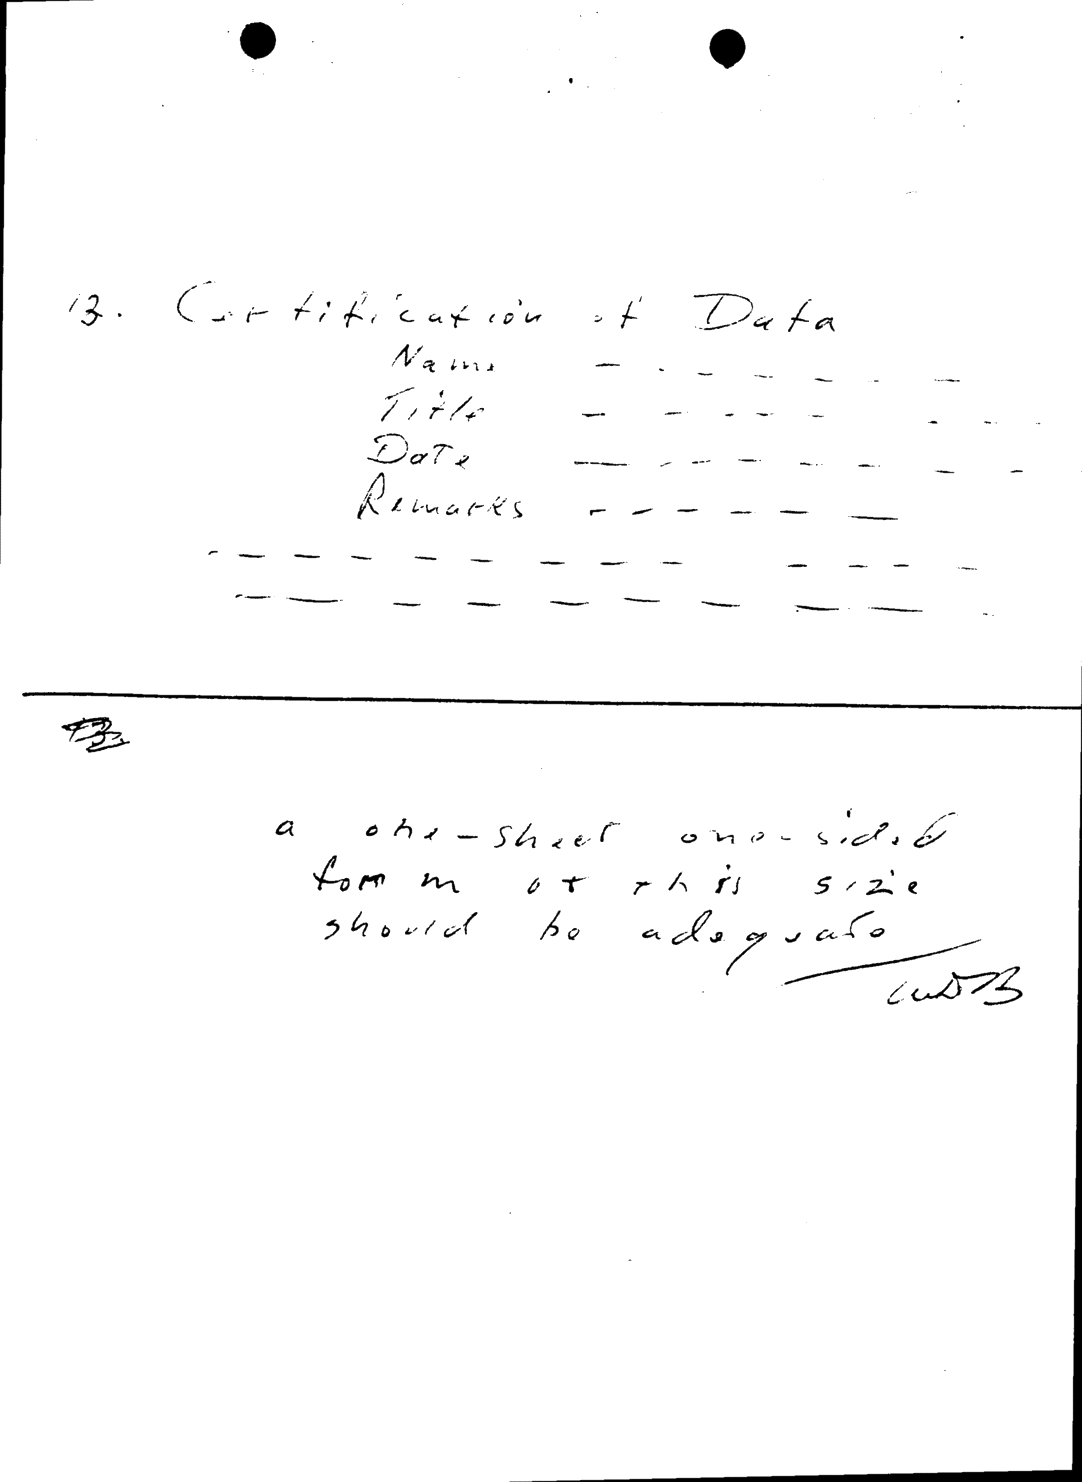 13. Certification of Data
Name - - - - - - -
Title - - - - - - - -
Date - - - - - - - - -
Remarks - - - - - -
- - - - - - - - - - - - -
- - - - - - - - - - -
a one-sheet one-sided
form of this size
should be adequate
WDB